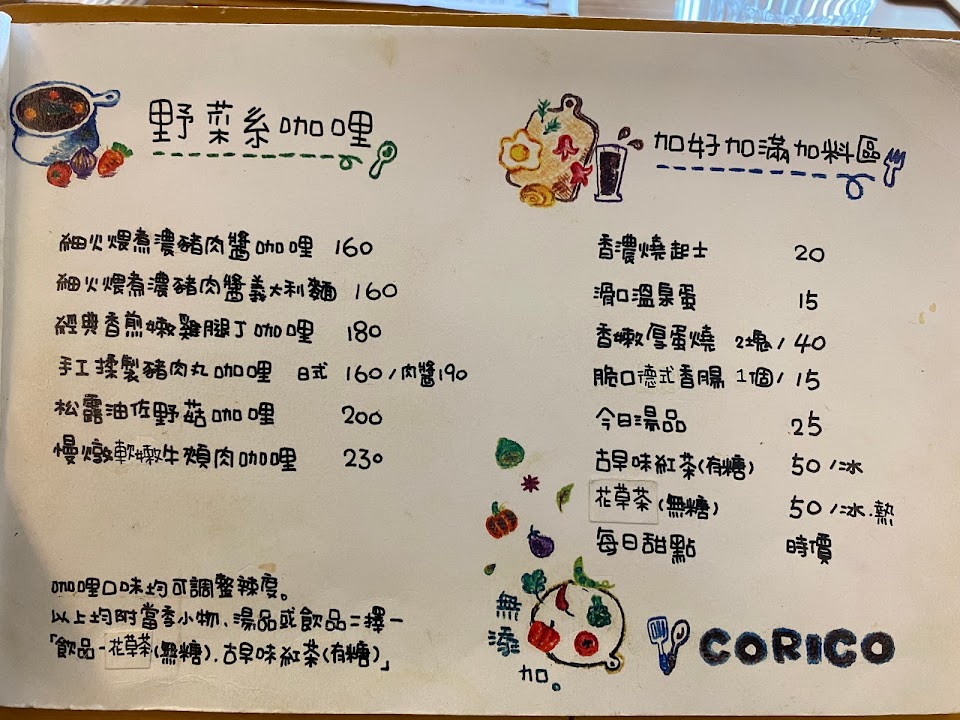 野菜系咖哩
細火煨煮濃豬肉醬咖哩 160
細火煨煮濃豬肉醬義大利麵 160
經典香煎嫩雞腿丁咖哩 180
手工揉製豬肉丸咖哩 日式 160/肉醬190
松露油佐野菇咖哩 200
慢燉軟嫩牛頰肉咖哩 230
咖哩口味均可調整辣度。
以上均附當季小物、湯品或飲品二擇一
「飲品-花草茶(無糖).古早味紅茶(有糖)」
加好加滿加料區
香濃燒起士 20
滑口溫泉蛋 15
香嫩厚蛋燒 2塊/40
脆口德式香腸 1個/15
今日湯品 25
古早味紅茶(有糖) 50/冰
花草茶(無糖) 50/冰.熱
每日甜點 時價
無添加。
CORICO